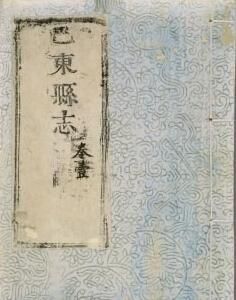 巴東縣志
卷壹